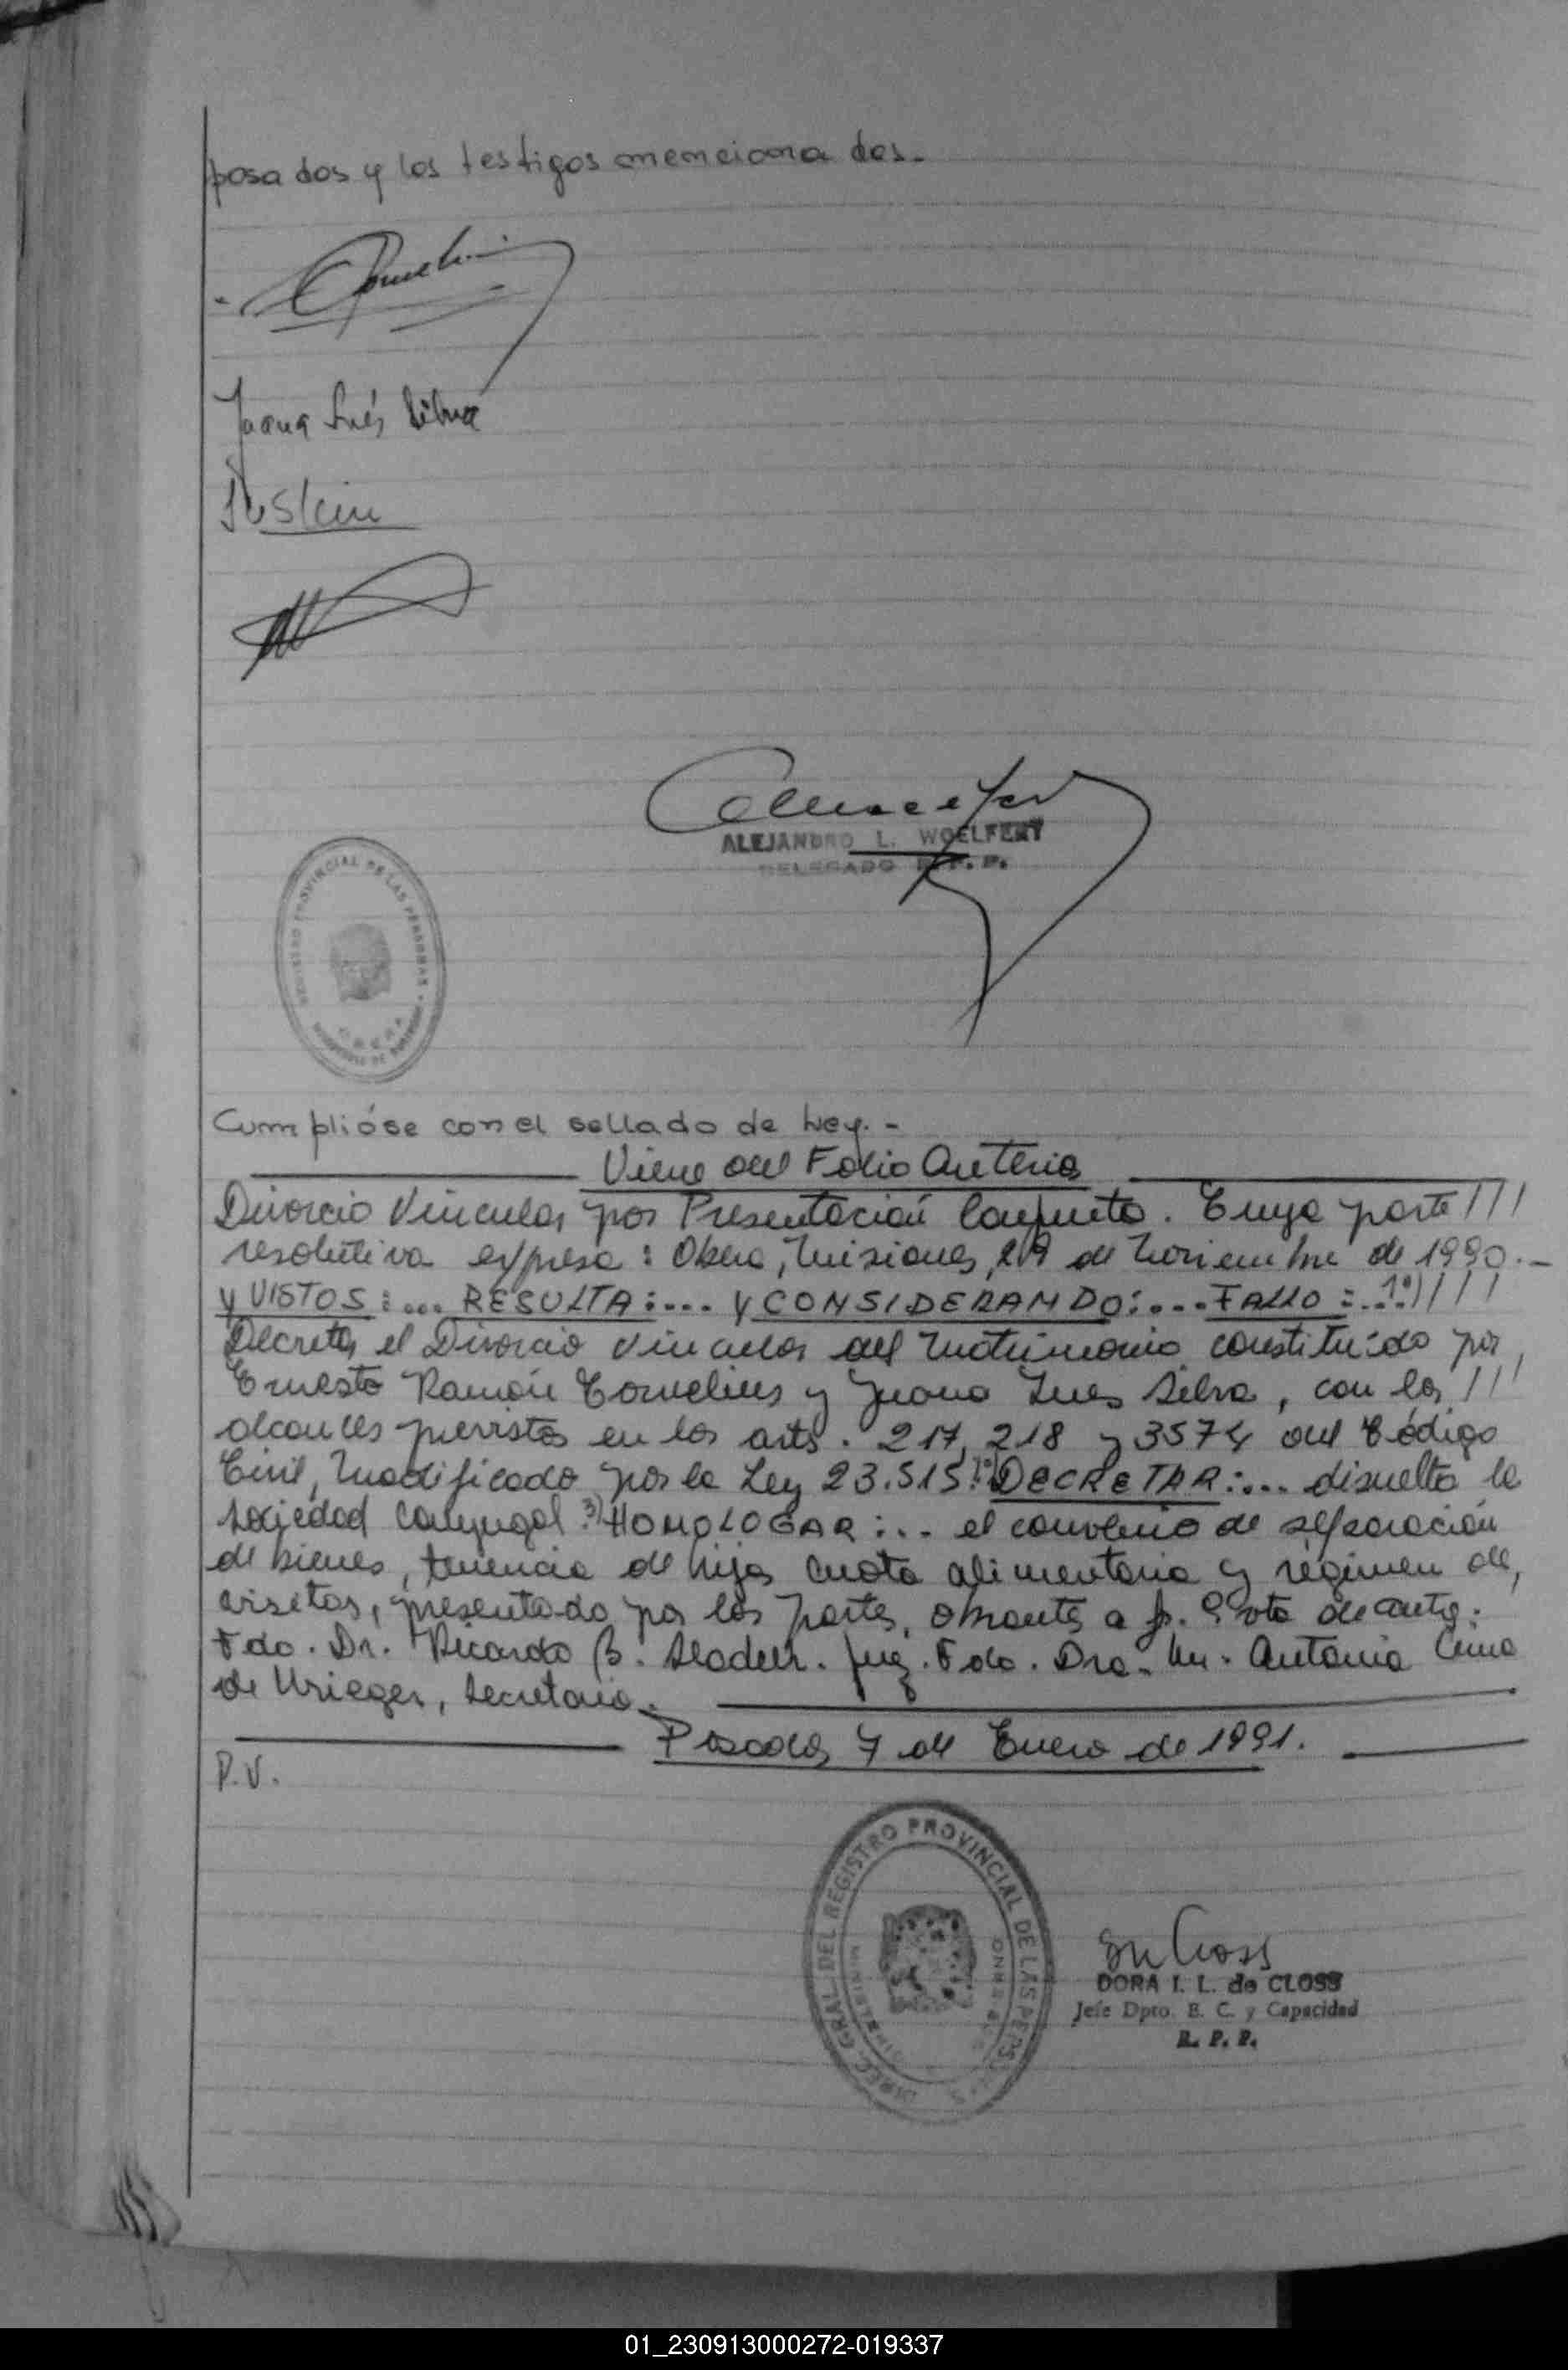 posados y los testigos mencionados.-
Juana Inés Silva
ALEJANDRO L. WOELFERT
DELEGADO R. P. P.
REGISTRO PROVINCIAL DE LAS PERSONAS
OBERA
Cumplióse con el sellado de Ley.-
Viene del Folio Anterior
Divorcio Vincular por Presentación Conjunta. Cuya parte ///
resolutiva expresa: Obera, Misiones, 29 de Noviembre de 1990.-
Y VISTOS:... RESULTA:.... Y CONSIDERANDO:.... FALLO:.1º)////
Decretar el Divorcio Vincular del Matrimonio constituído por
Ernesto Ramón Cornelius y Juana Ines Silva, con los ///
alcances previstos en los arts. 217, 218 y 3574 del Código
Civil, Modificado por la Ley 23.515. DECRETAR:.... disuelta la
sociedad conyugal. 3) HOMOLOGAR:... el convenio de separación
de bienes, tenencia de hijos cuota alimentaria y régimen de
visitas, presentado por las partes, obrante a fs. vta de autos.
Fdo. Dr. Ricardo B. Juez. Fdo. Dra. M. Antonia
de Krieger, Secretaria.
Posadas, 7 de Enero de 1991.
P.V.
DIREC. GRAL. DEL REGISTRO PROVINCIAL DE LAS PERSONAS
DORA I. L. de CLOSS
Jefe Dpto. E. C. y Capacidad
R. P. P.
01_230913000272-019337